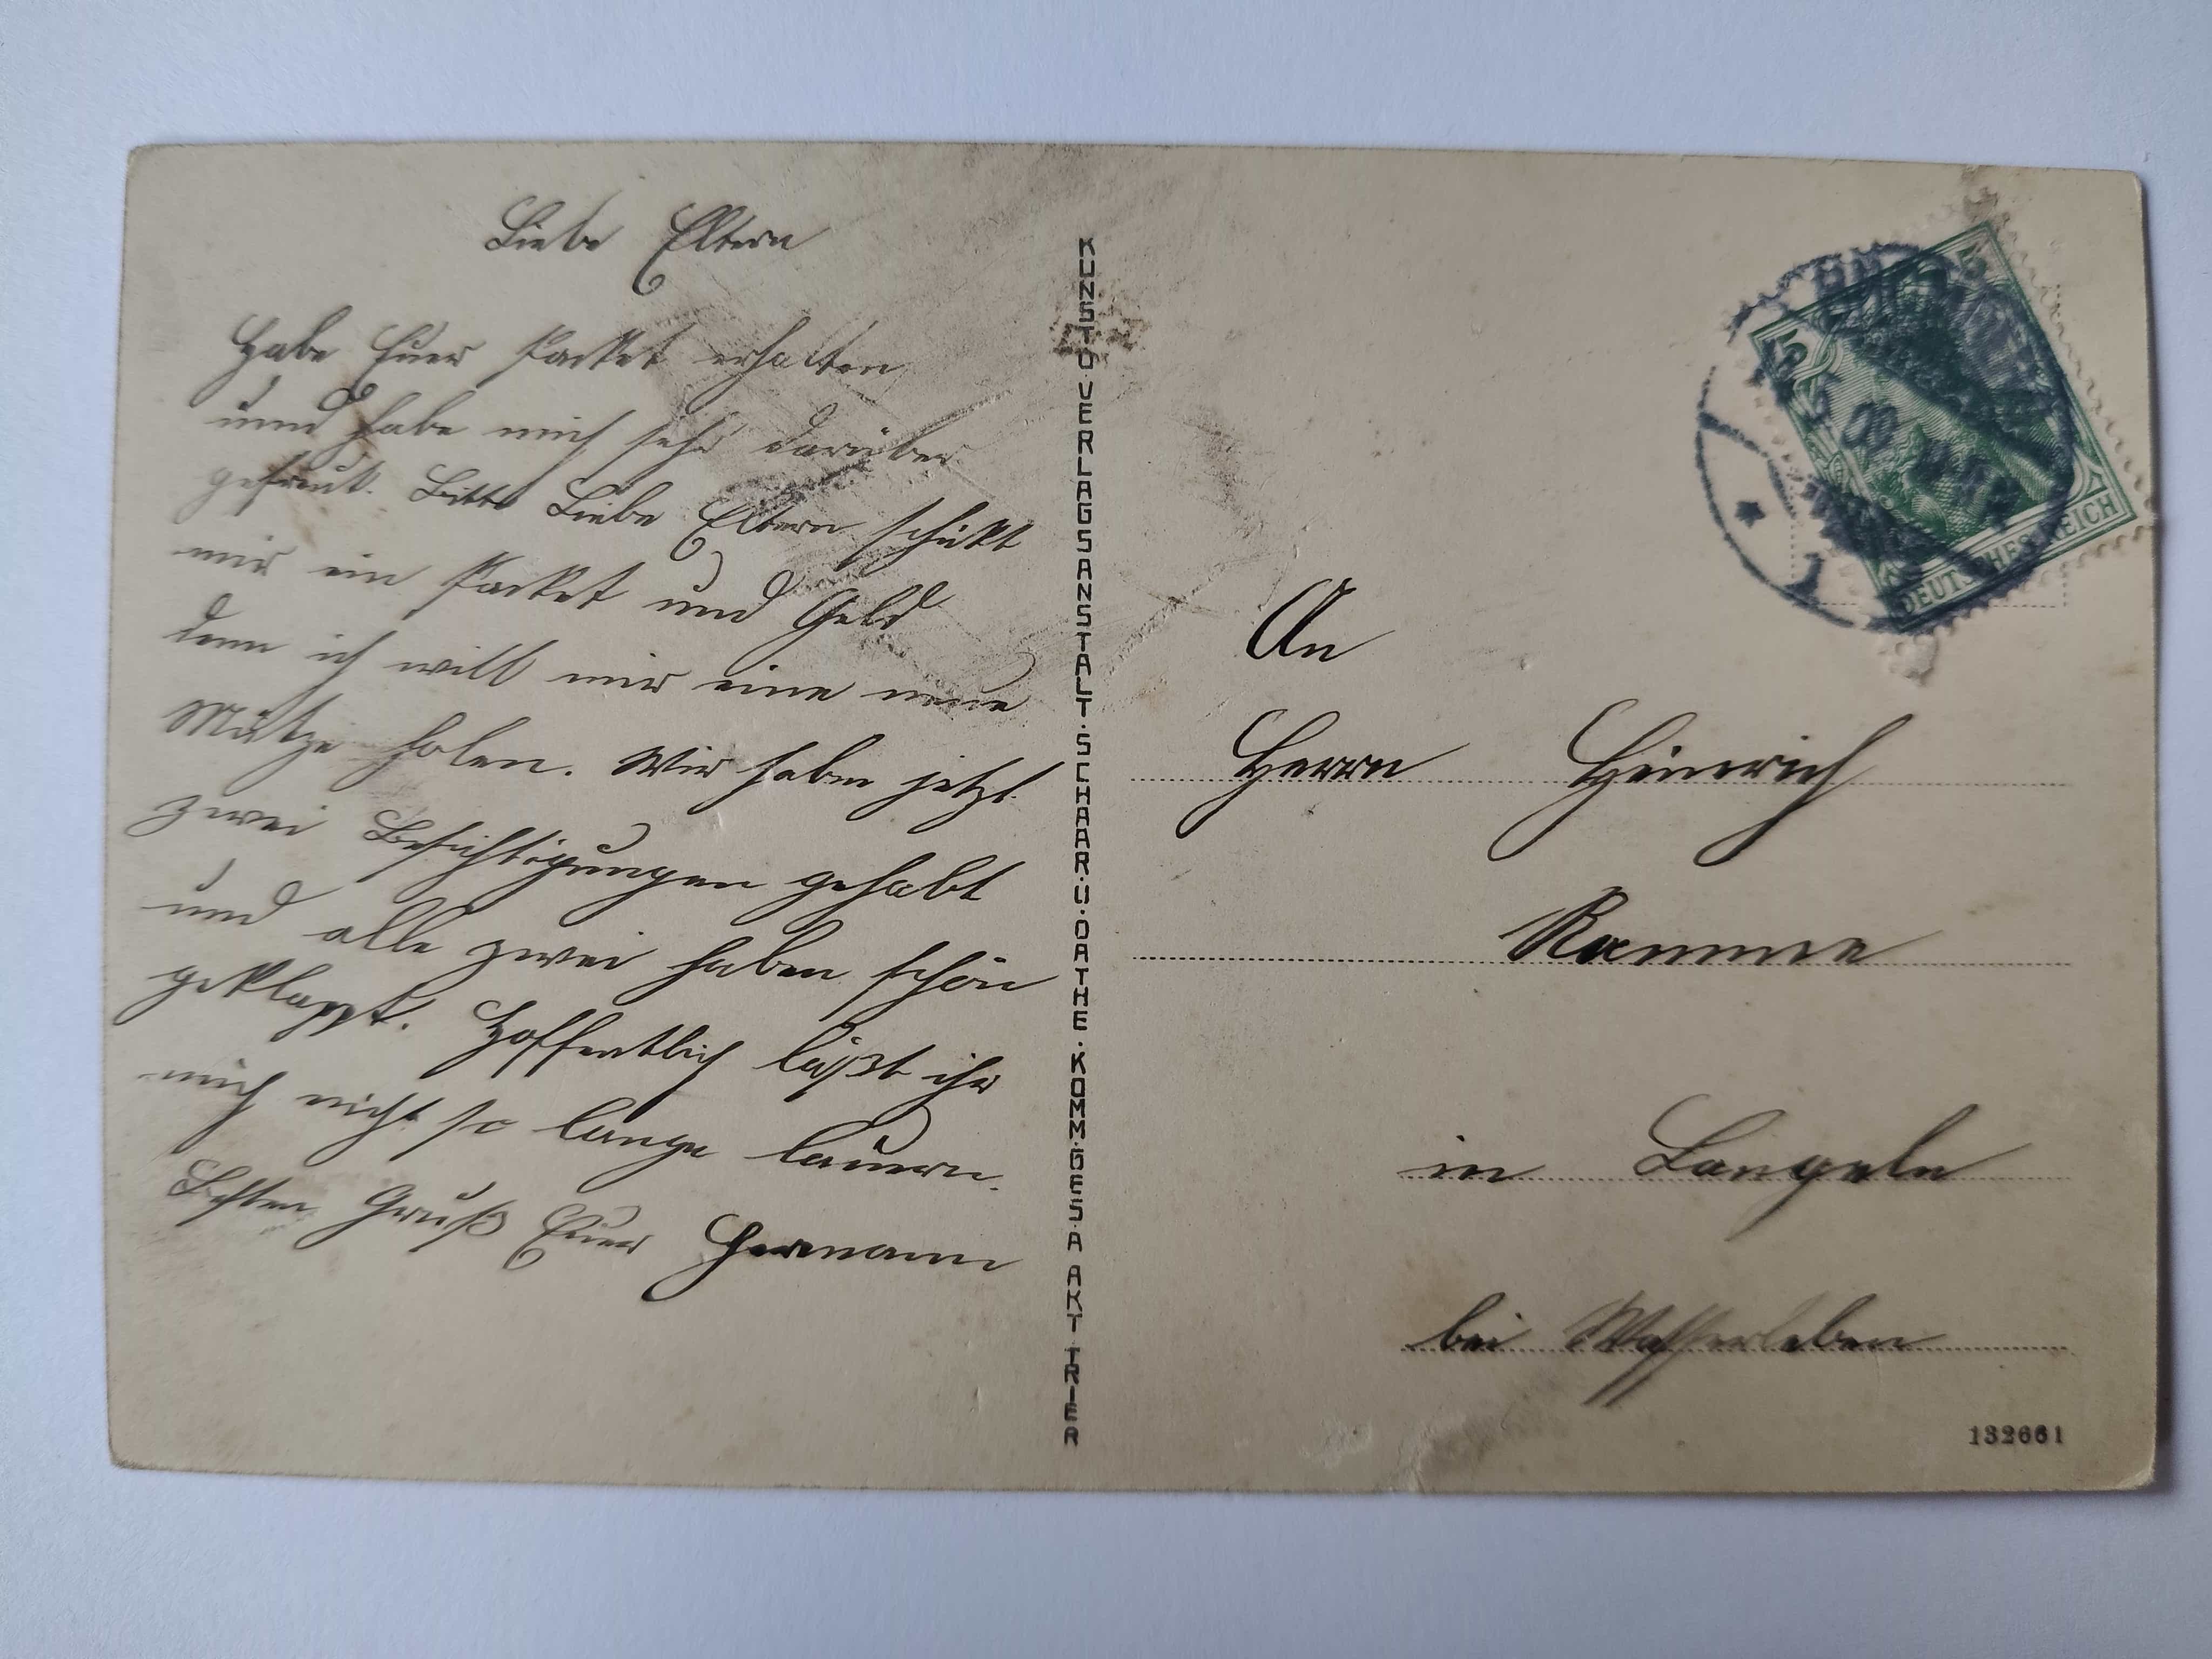 Liebe Eltern
Habe Euer Packet erhalten
und habe mich sehr darüber
gefreut. Bitte Liebe Eltern schikt
mir ein Packet und Geld
denn ich will mir eine neue
Mütze holen. Wir haben jetzt
zwei Besichtigungen gehabt
und alle zwei haben schön
geklappt. Hoffentlich laßt ihr
mich nicht so lange lauern.
Besten Gruß Euer Hermann
KUNST U. VERLAGSANSTALT · SCHAAR · U · DATHE · KOMM · GES · A AKT TRIER
5
5
09
DEUTSCHES REICH
An
Herrn Heinrich
Ramme
in Langeln
bei Wasserleben
132661